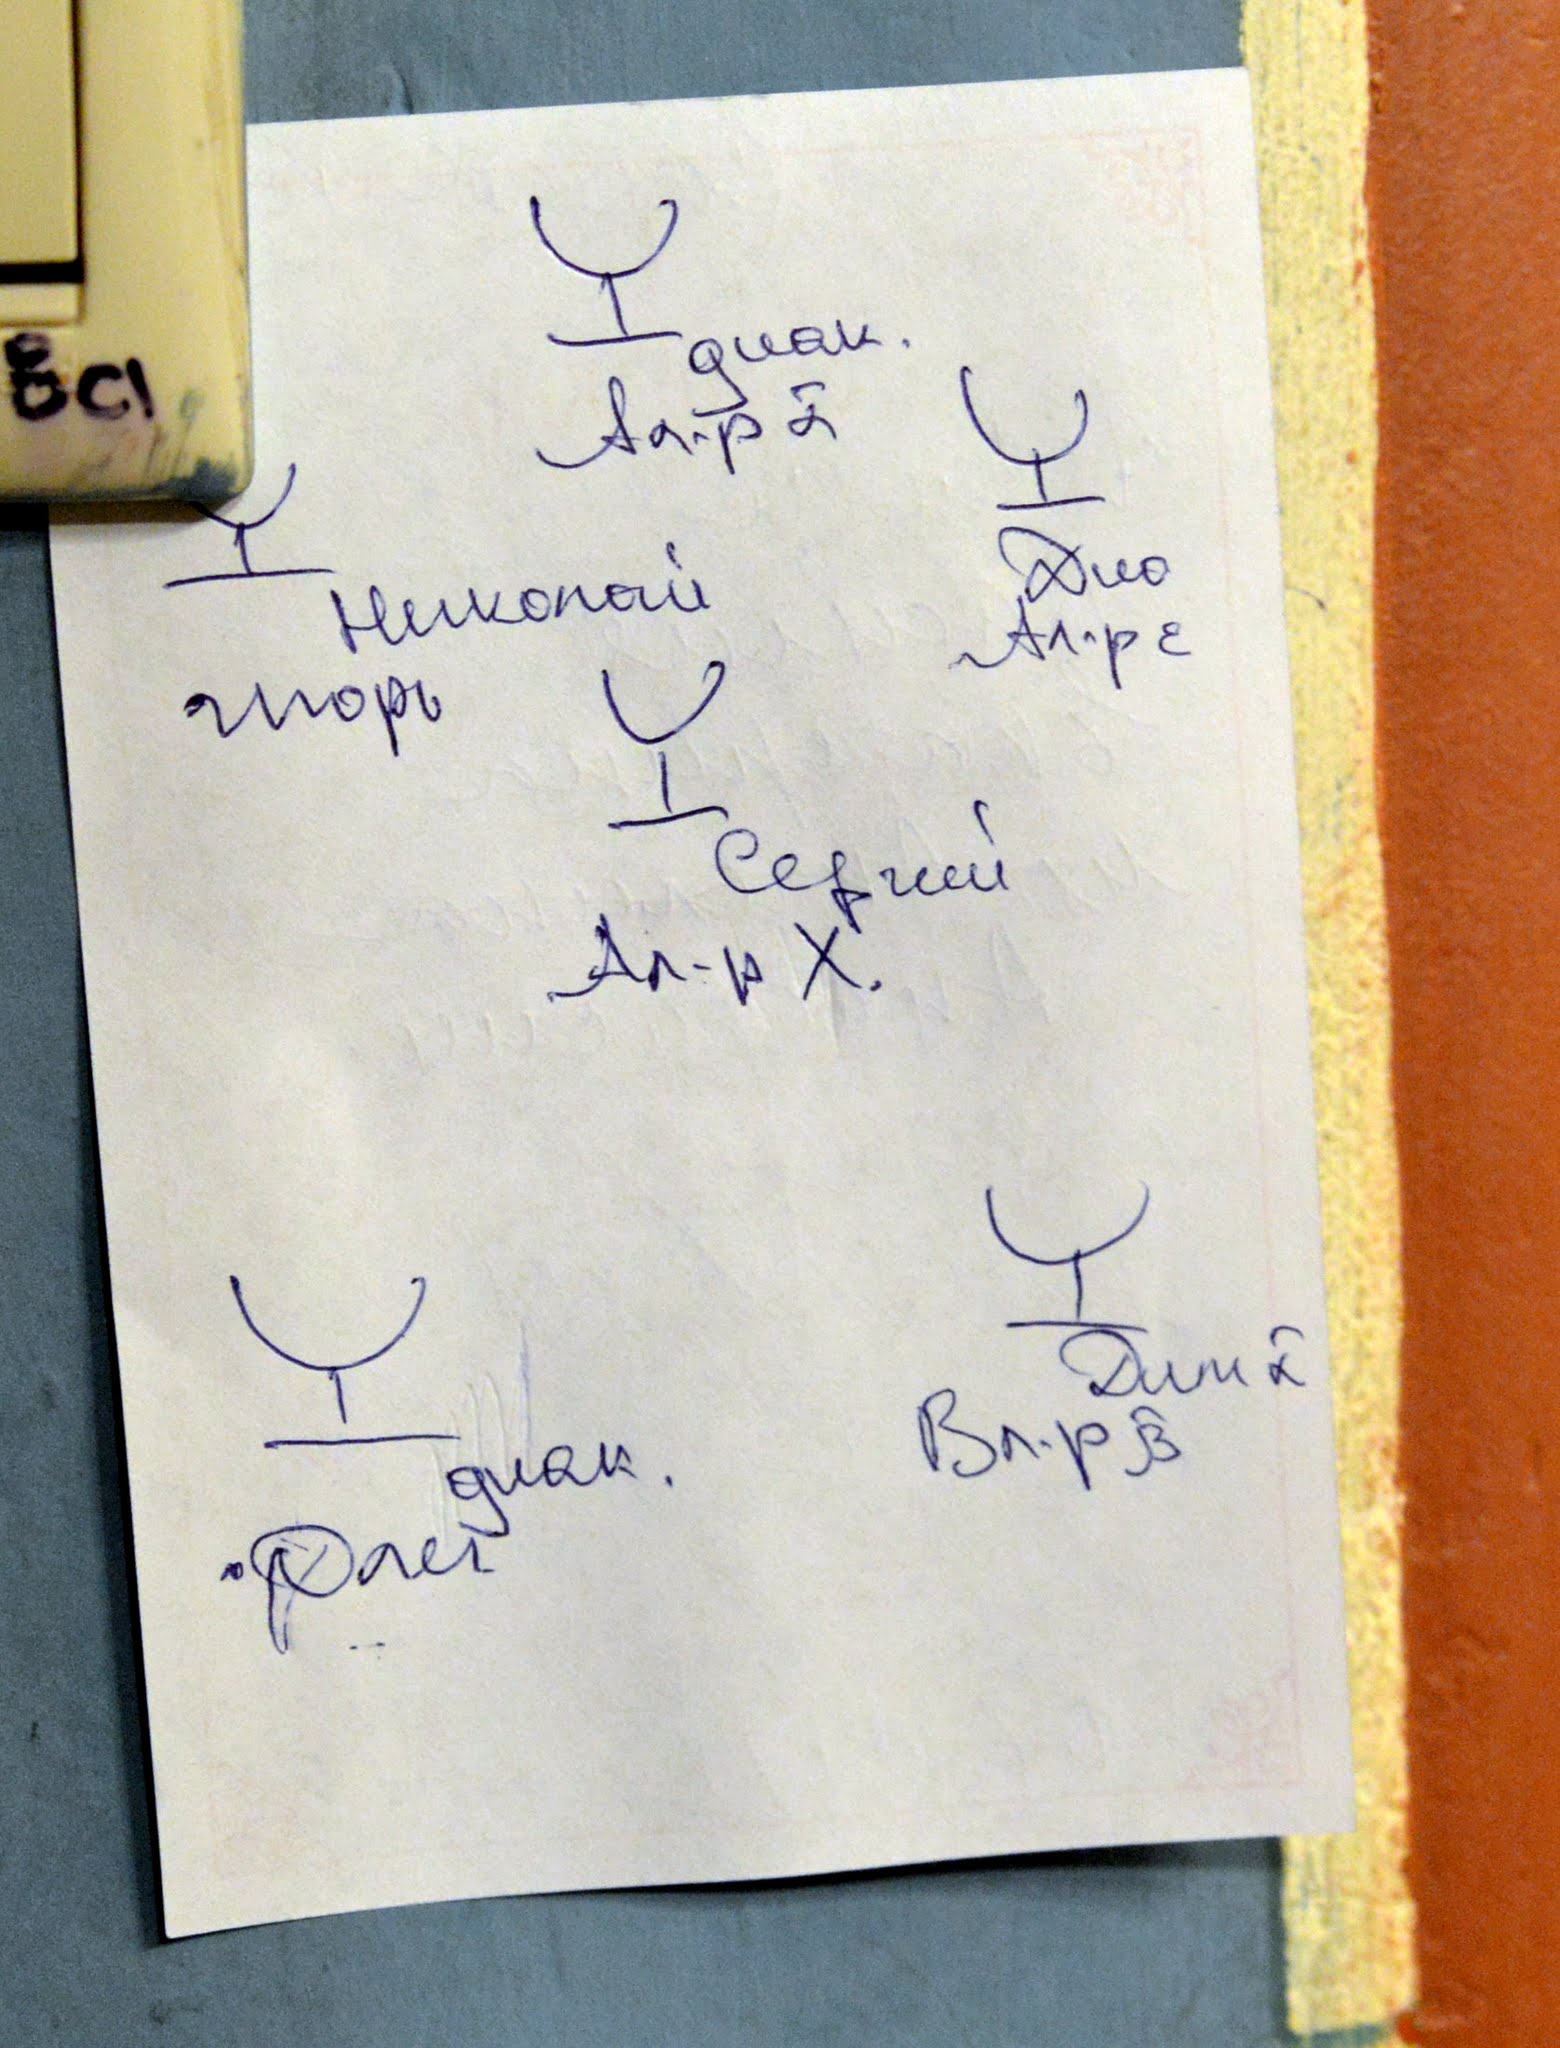 ВСІ
диак.
Ал-р а̃
Дио
Ал-р ε
Николай
Игорь
Сергий
Ал-р Х.
Дим а̃
Вл-р в̃
диак.
Олег